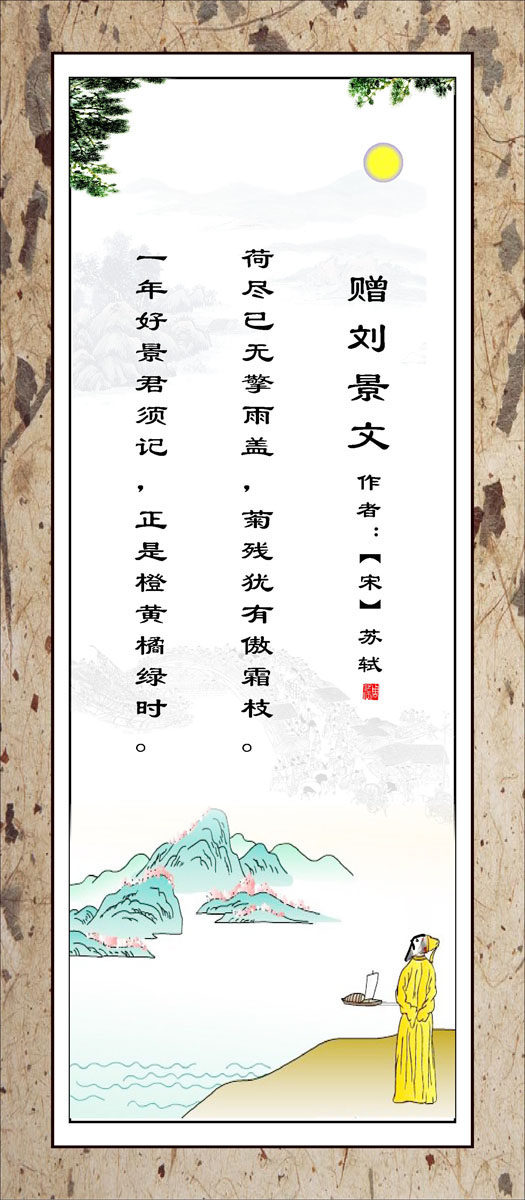 赠刘景文 作者：【宋】苏轼
荷尽已无擎雨盖，菊残犹有傲霜枝。
一年好景君须记，正是橙黄橘绿时。